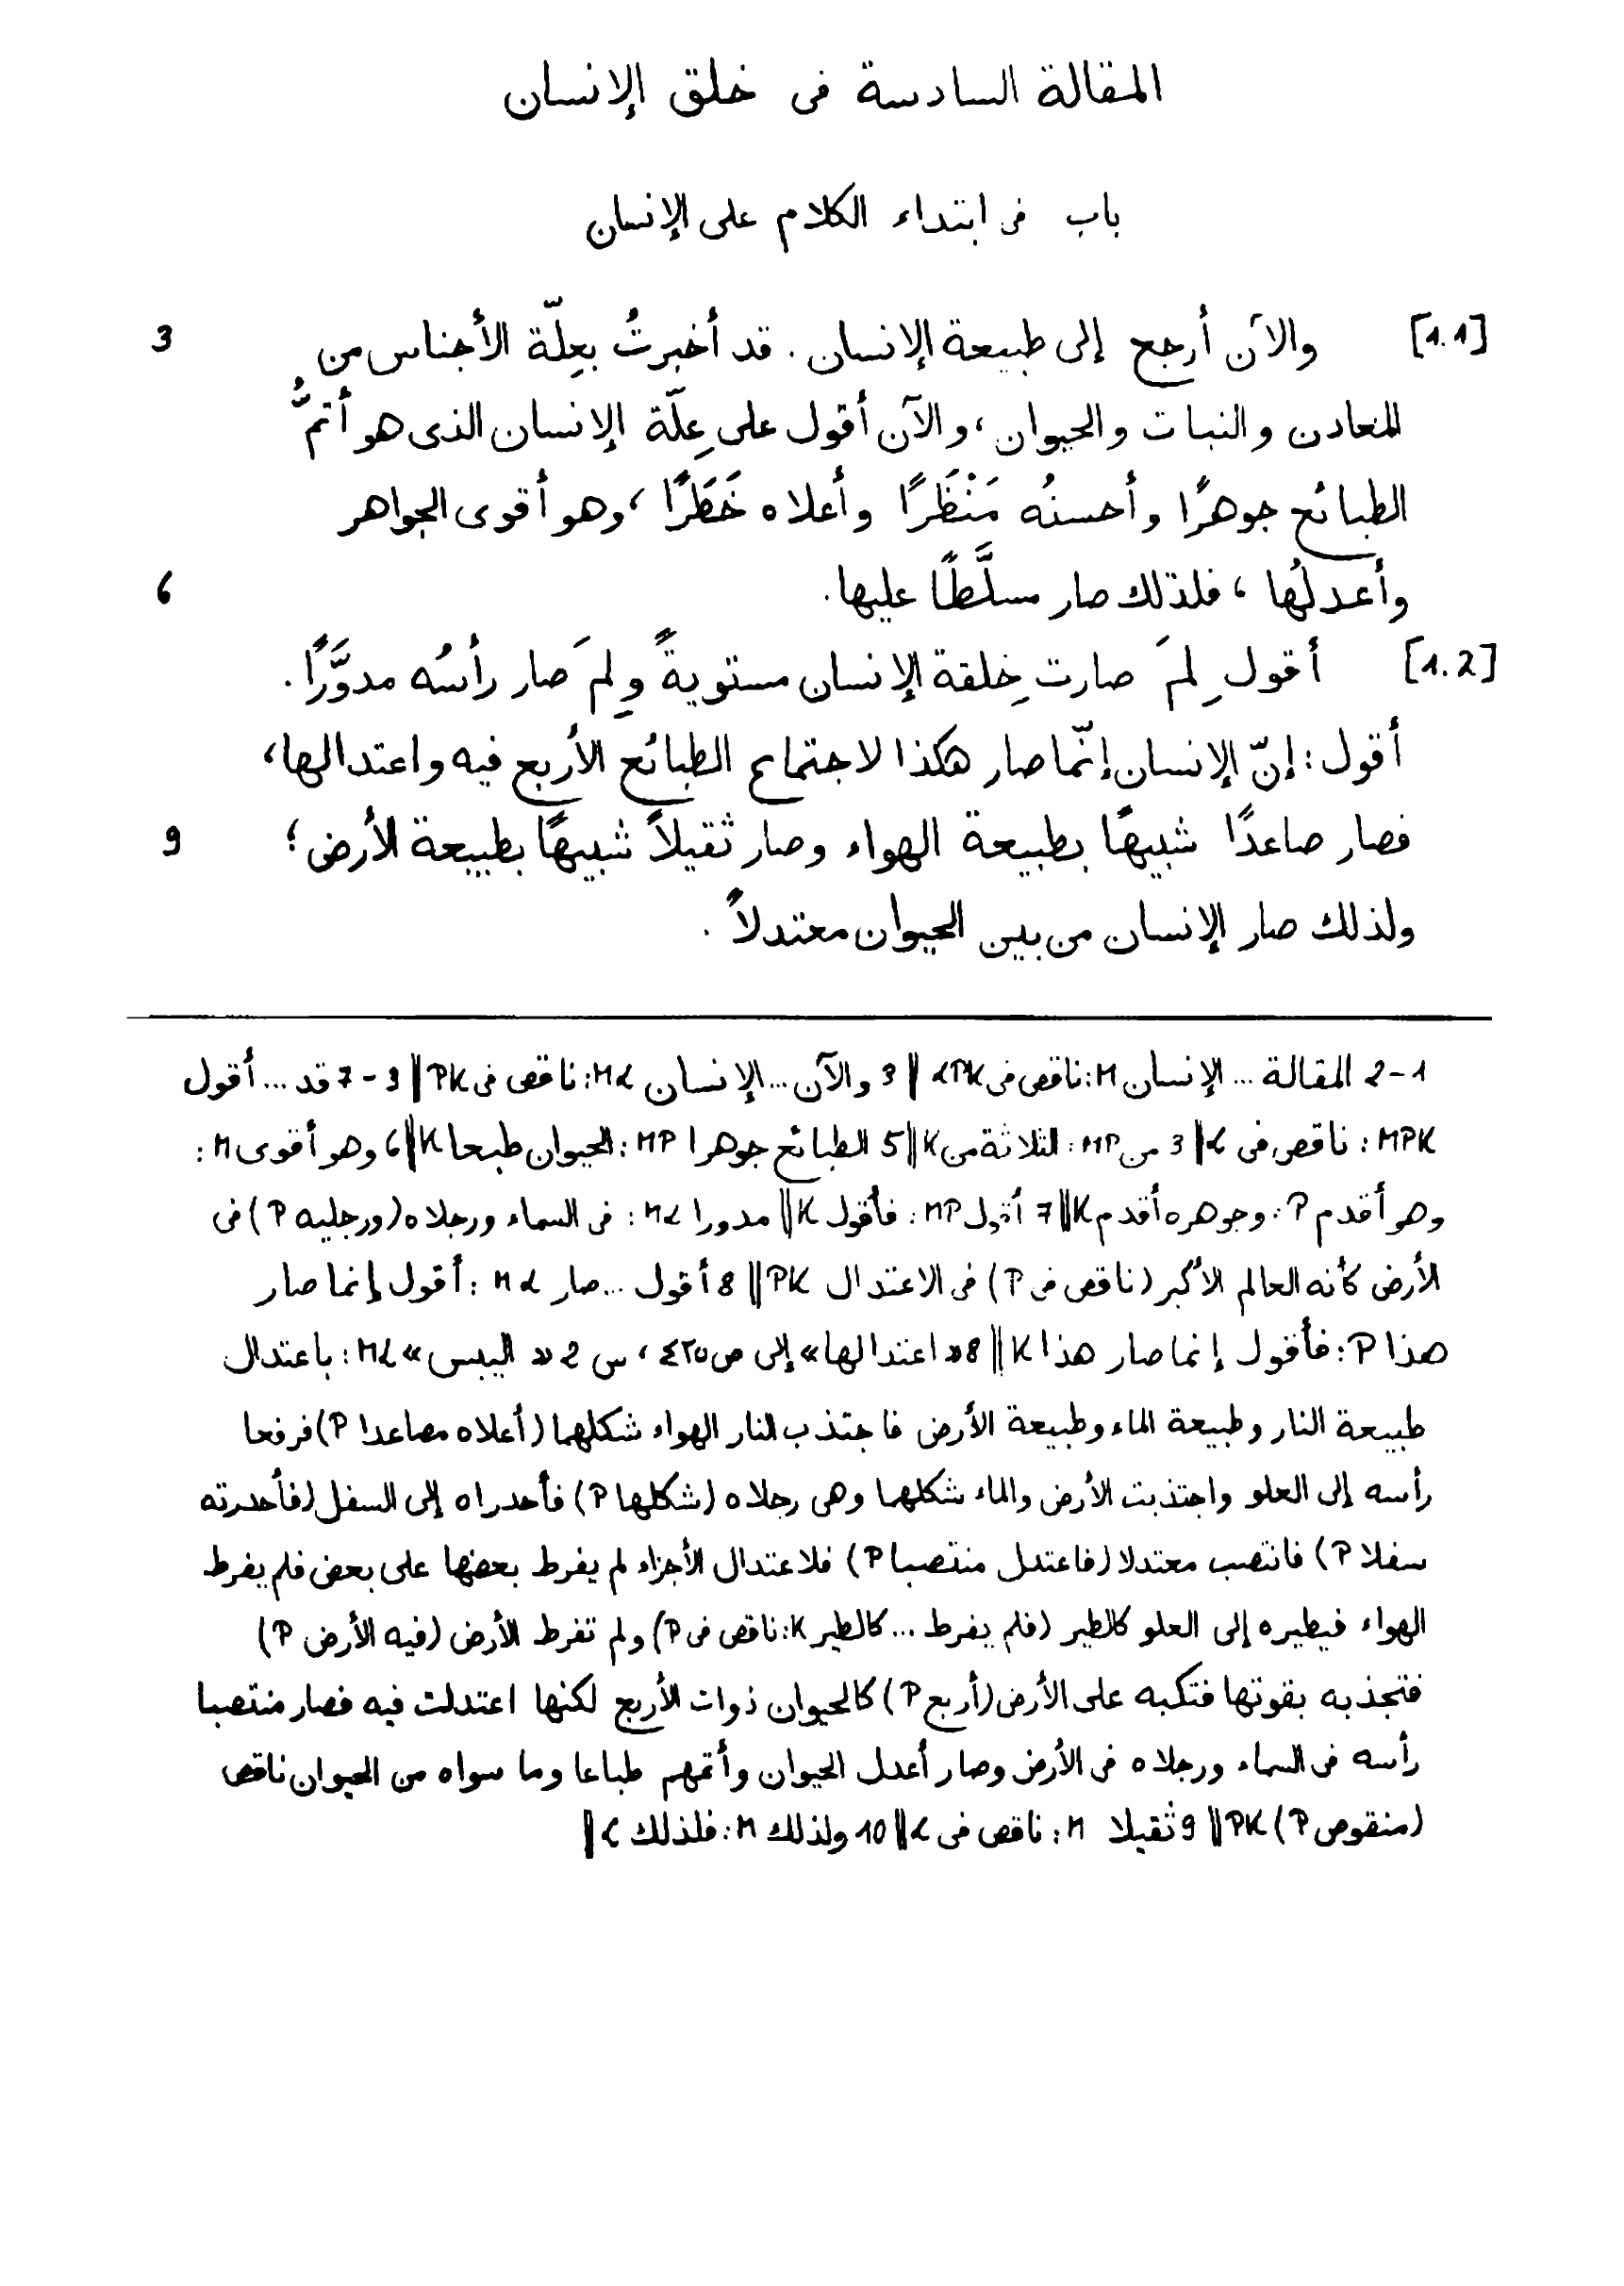 المقالة السادسة فى خلق الإنسان
باب فى ابتداء الكلام على الإنسان
[1.1] والآن أرجع إلى طبيعة الإنسان. قد أخبرتُ بعِلّة الأجناس من 3
المعادن والنبات والحيوان، والآن أقول على عِلّة الإنسان الذى هو أتمُّ
الطبائع جوهرًا وأحسنُه مَنْظَرًا وأعلاه خَطَرًا، وهو أقوى الجواهر
وأعدلُها، فلذلك صار مسلَّطًا عليها. 6
[1.2] أقول لِمَ صارت خِلقة الإنسان مستويةً ولِمَ صار رأسُه مدوَّرًا.
أقول: إنّ الإنسان إنّما صار هكذا لاجتماع الطبائع الأربع فيه واعتدالها،
فصار صاعدًا شبيهًا بطبيعة الهواء وصار ثقيلاً شبيهًا بطبيعة الأرض؛ 9
ولذلك صار الإنسان من بين الحيوان معتدلاً.
1-2 المقالة ... الإنسان M: ناقص فى LPK ‖ 3 والآن ... الإنسان ML: ناقص فى PK ‖ 3-7 قد ... أقول
MPK: ناقص فى L ‖ 3 من MP: الثلاثة من K ‖ 5 الطبائع جوهرا MP: الحيوان طبعا K ‖ 6 وهو أقوى M:
وهو أقدم P: وجوهره أقدم K ‖ 7 أقول MP: فأقول K ‖ مدورا ML: فى السماء ورجلاه (ورجليه P) فى
الأرض كأنه العالم الأكبر (ناقص فى P) فى الاعتدال PK ‖ 8 أقول ... صار ML: أقول إنما صار
هذا P: فأقول إنما صار هذا K ‖ 8 «اعتدالها» إلى ص ٤٢٥، س 2 «اليبس» ML: باعتدال
طبيعة النار وطبيعة الماء وطبيعة الأرض فاجتذب النار الهواء شكلهما (أعلاه مصاعدا P) فرفعا
رأسه إلى العلو واجتذبت الأرض والماء شكلهما وهى رجلاه (شكلها P) فأحدراه إلى السفل (فأحدرته
سفلا P) فانتصب معتدلا (فاعتدل منتصبا P) فلاعتدال الأجزاء لم يفرط بعضها على بعض فلم يفرط
الهواء فيطيره إلى العلو كالطير (فلم يفرط ... كالطير K: ناقص فى P) ولم تفرط الأرض (فيه الأرض P)
فتجذبه بقوتها فتكبه على الأرض (أربع P) كالحيوان ذوات الأربع لكنها اعتدلت فيه فصار منتصبا
رأسه فى السماء ورجلاه فى الأرض وصار أعدل الحيوان وأتمهم طباعا وما سواه من الحيوان ناقص
(منقوص P) PK ‖ 9 ثقيلا M: ناقص فى L ‖ 10 ولذلك M: فلذلك L ‖